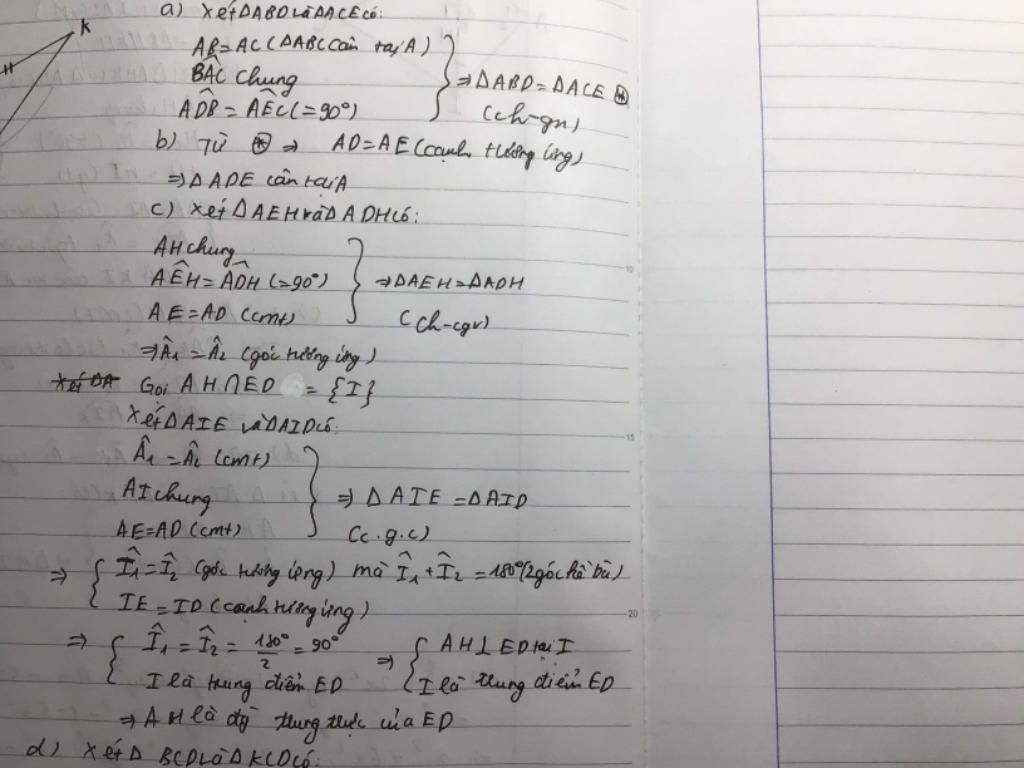 K
H
a) Xét ΔABD và ΔACE có:
AB=AC (ΔABC cân tại A)
BÂC chung
AD̂B = AÊC (=90°)
⇒ ΔABD = ΔACE ⊛
(ch-gn)
b) Từ ⊛ ⇒ AD=AE (cạnh tương ứng)
⇒ ΔADE cân tại A
c) Xét ΔAEH và ΔADH có:
AH chung
AÊH = AD̂H (=90°)
AE = AD (cmt)
⇒ ΔAEH = ΔADH
(ch-cgv)
⇒ Â₁ = Â₂ (góc tương ứng)
Xét ΔA Gọi AH ∩ ED = {I}
Xét ΔAIE và ΔAID có:
Â₁ = Â₂ (cmt)
AI chung
AE=AD (cmt)
⇒ ΔAIE = ΔAID
(c.g.c)
⇒ { Î₁ = Î₂ (góc tương ứng) mà Î₁ + Î₂ = 180° (2 góc kề bù)
IE = ID (cạnh tương ứng)
⇒ { Î₁ = Î₂ = 180°/2 = 90° ⇒ { AH ⊥ ED tại I
I là trung điểm ED I là trung điểm ED
⇒ AH là đg trung trực của ED
d) Xét Δ BCD và Δ KCD có:
10
15
20